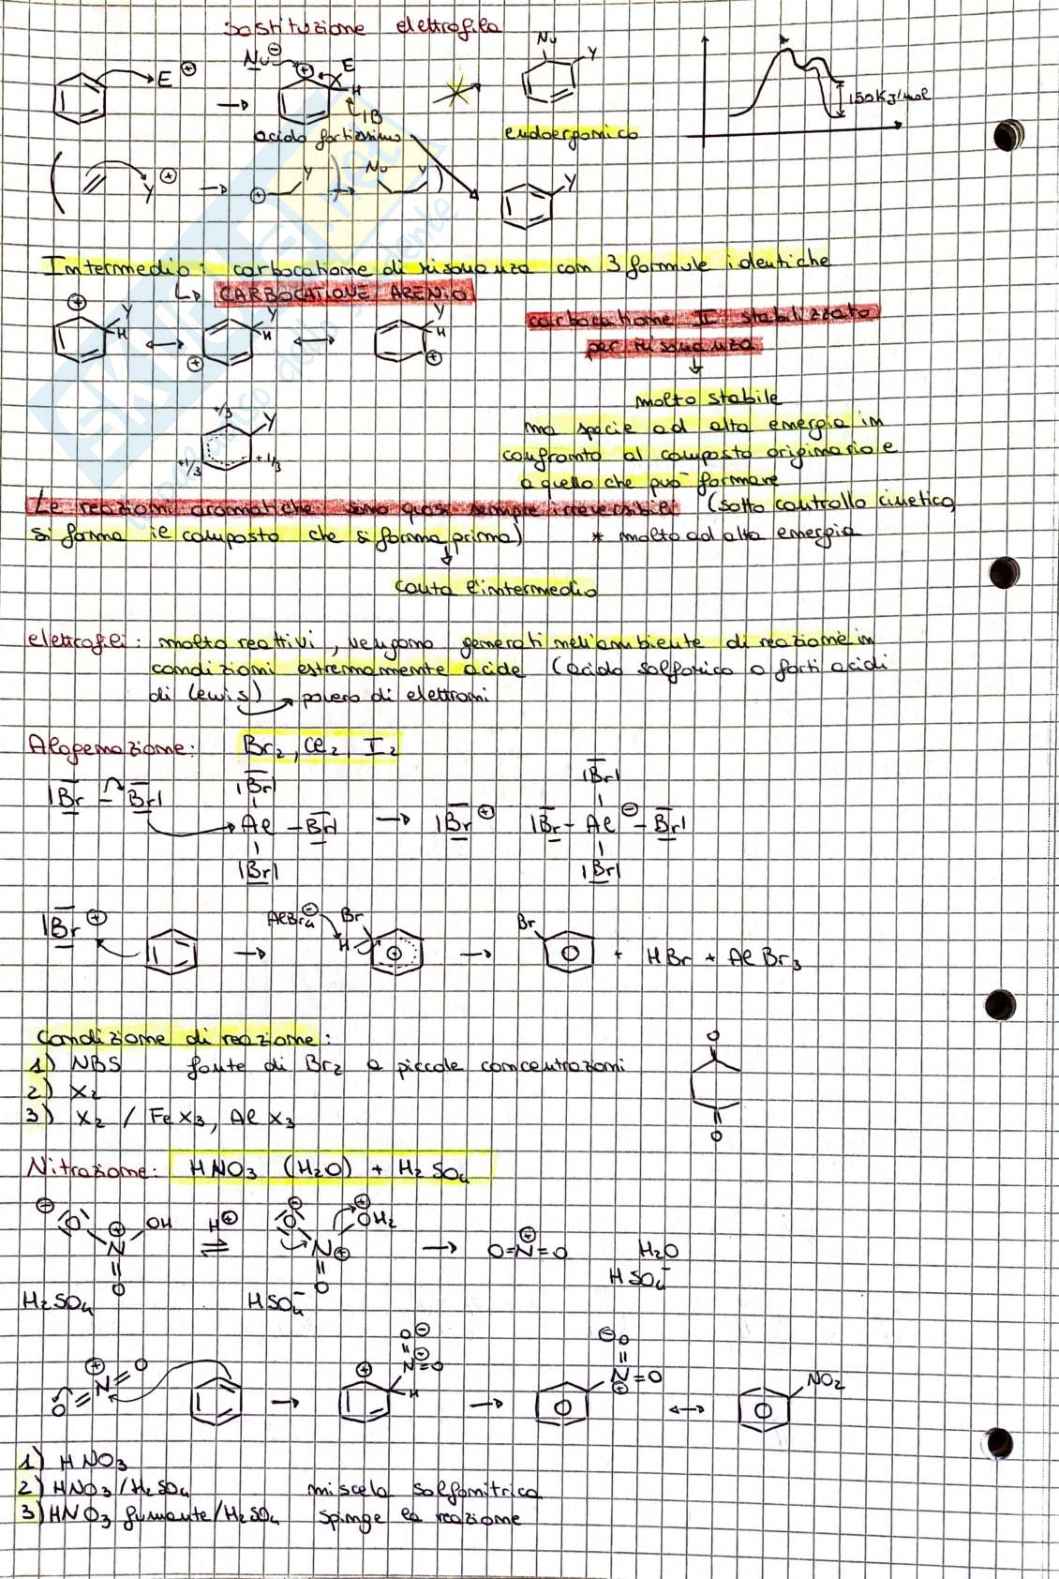 Sostituzione elettrofila
Nu⊖ E Nu Y
E⊕ H
IB 150KJ/mol
acido fortissimo endoergonico
Y⊕ Y Nu Y Y
Intermedio: carbocatione di risonanza con 3 formule identiche
↳ CARBOCATIONE ARENIO
Y H Y H Y H
carbocatione II stabilizzato
per risonanza
molto stabile
ma specie ad alta energia in
confronto al composto originario e
a quello che può formare
+1/3 Y
+1/3 +1/3
Le reazioni aromatiche sono quasi sempre irreversibili (sotto controllo cinetico,
si forma il composto che si forma prima) * molto ad alta energia
conta l'intermedio
elettrofili: molto reattivi, vengono generati nell'ambiente di reazione in
condizioni estremamente acide (acido solforico o forti acidi
di Lewis) → povero di elettroni
Alogenazione: Br2, Cl2, I2
|Br| |Br|
|Br – Br| Al – Br| → |Br⊕ |Br – Al⊖ – Br|
|Br| |Br|
|Br⊕ → AlBr4⊖ Br H → Br + HBr + AlBr3
Condizione di reazione:
1) NBS fonte di Br2 a piccole concentrazioni
2) X2
3) X2 / FeX3, AlX3
O
O
Nitrazione: HNO3 (H2O) + H2SO4
⊖O N⊕ OH H⊕ ⇌ ⊖O N⊕ ⊕OH2 → O=N⊕=O H2O
O O HSO4-
H2SO4 HSO4-
O⊖ ⊖O
O=N⊕=O → N=O H → N⊕=O ↔ NO2
1) HNO3
2) HNO3/H2SO4 miscela solfonitrica
3) HNO3 fumante/H2SO4 spinge la reazione